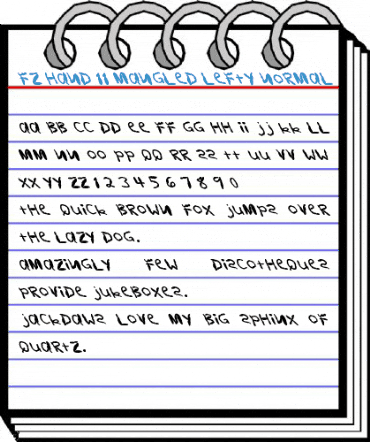 FZ HAND 11 MANGLED LEFTY NORMAL
aa BB CC DD ee FF GG HH ii jj kk LL
MM NN OO PP QQ RR SS tt UU VV WW
XX YY ZZ 1 2 3 4 5 6 7 8 9 0
tHe QUiCk BROWN FOX jUMPS OVeR
tHe LaZY DOG.
aMaZiNGLY FeW DiSCOtHeQUeS
PROViDe jUkeBOXeS.
jaCkDaWS LOVe MY BiG SPHiNX OF
QUaRtZ.